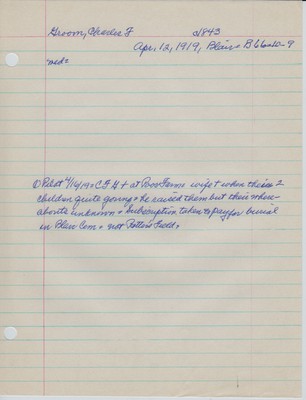 Groom, Charles F d1843
Apr. 12, 1919, Plains B66-10-9
md=
① Pilot 4/16/19 = C F G + at Poor Farm wife + when their 2
children quite young = He raised them but their where-
abouts unknown = Subscription taken to pay for burial
in Plain Cem = not Potters Field =